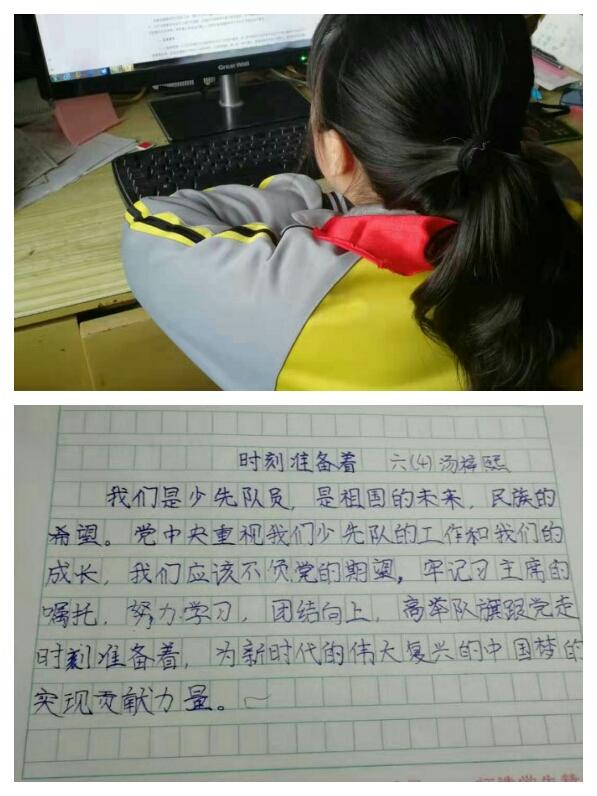 Great Wall
时刻准备着 六(4)汤梓熙
我们是少先队员，是祖国的未来，民族的
希望。党中央重视我们少先队的工作和我们的
成长，我们应该不负党的期望，牢记习主席的
嘱托，努力学习，团结向上，高举队旗跟党走
时刻准备着，为新时代的伟大复兴的中国梦的
实现贡献力量。